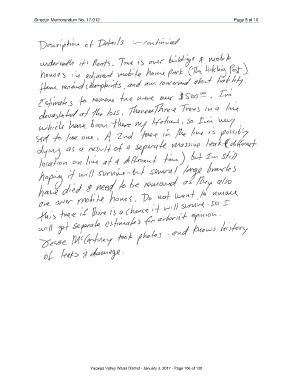 Director Memorandum No. 17-012 Page 5 of 10
Description of Details - continued
underneath its roots. Tree is over buildings & mobile
houses in adjacent mobile home park (The Hitching Post)
have received complaints, and am concerned about liability.
Estimates to remove the were over $500.00. I'm
devastated at the loss. There are Three Trees in a line
which have been there my lifetime, so I'm very
sad to lose one. A 2nd tree in the line is possibly
dying as a result of a separate massive leak (different
location on line at a different time) but I'm still
hoping it will survive - but several large branches
have died & need to be removed as they also
are over mobile homes. Do not want to remove
this tree if there is a chance it will survive - so I
will get separate estimates for arborist opinion.
McCartney took photos - and knows history
of leaks & damage.
Yucaipa Valley Water District - January 3, 2017 - Page 106 of 120